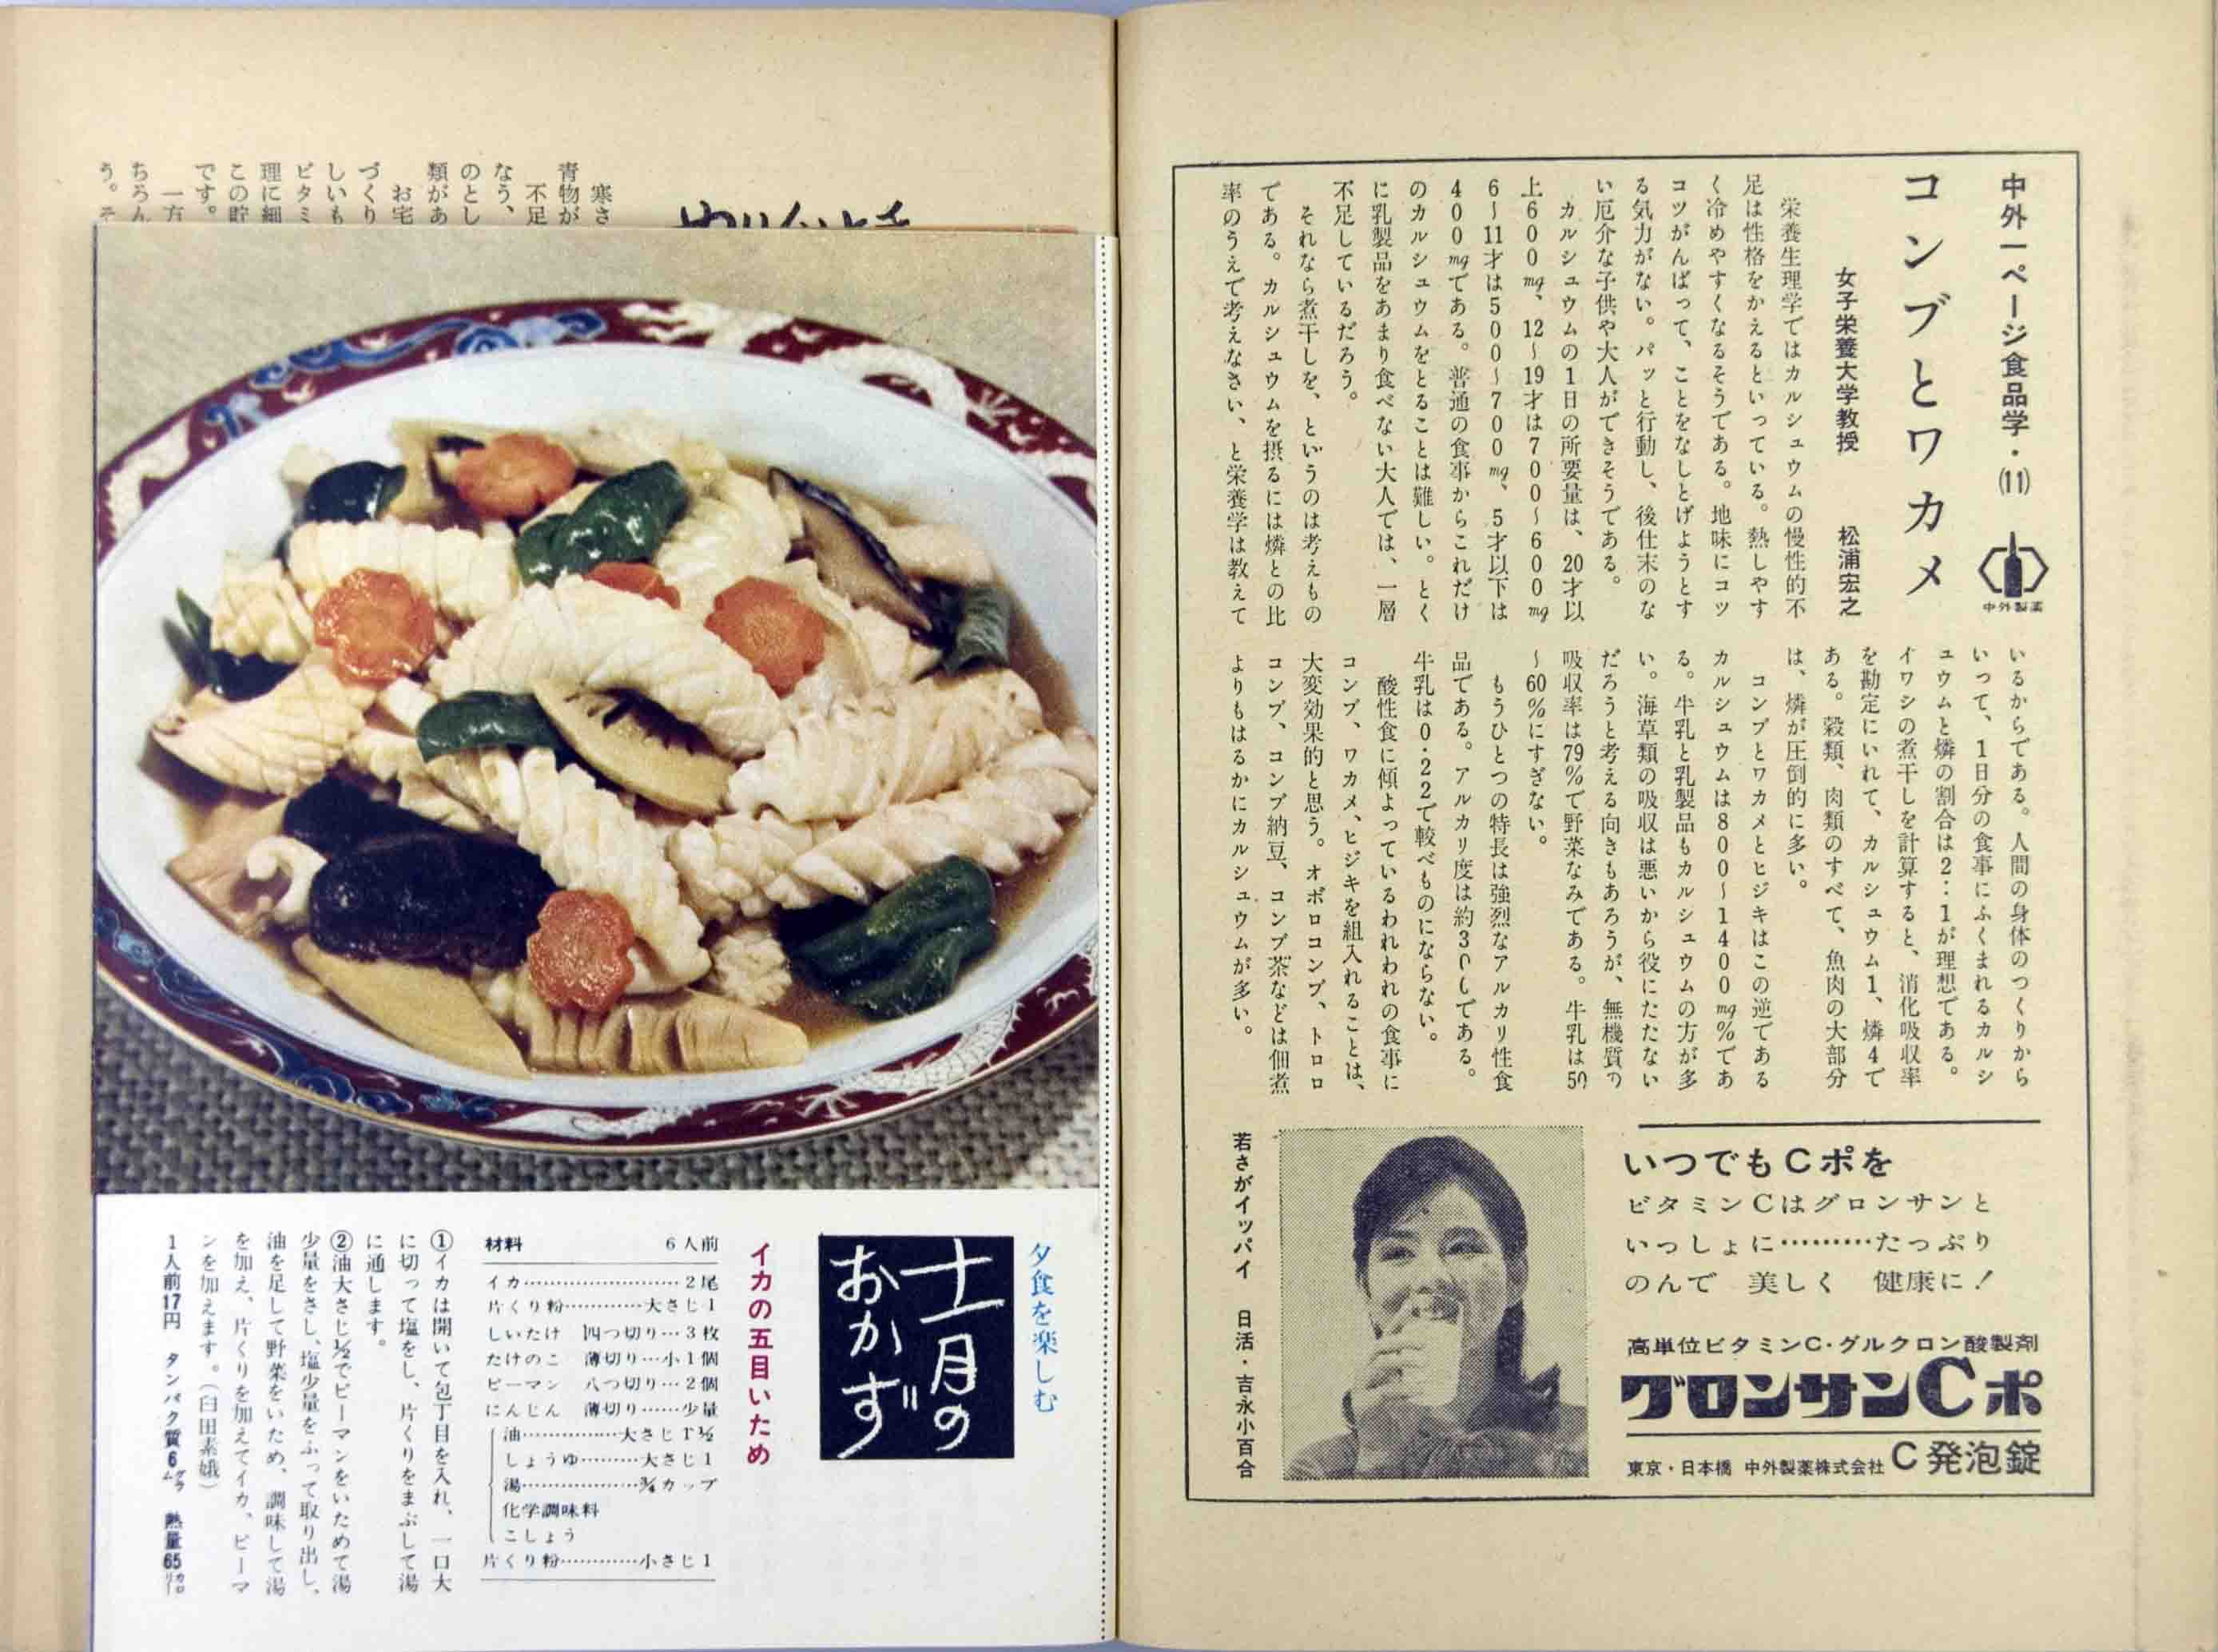 中外一ページ食品学・(11)
中外製薬
コンブとワカメ
女子栄養大学教授　松浦宏之
栄養生理学ではカルシュウムの慢性的不
足は性格をかえるといっている。熱しやす
く冷めやすくなるそうである。地味にコツ
コツがんばって、ことをなしとげようとす
る気力がない。パッと行動し、後仕末のな
い厄介な子供や大人ができそうである。
カルシュウムの1日の所要量は、20才以
上600mg、12〜19才は700〜600mg
6〜11才は500〜700mg、5才以下は
400mgである。普通の食事からこれだけ
のカルシュウムをとることは難しい。とく
に乳製品をあまり食べない大人では、一層
不足しているだろう。
それなら煮干しを、というのは考えもの
である。カルシュウムを摂るには燐との比
率のうえで考えなさい、と栄養学は教えて
いるからである。人間の身体のつくりから
いって、1日分の食事にふくまれるカルシ
ュウムと燐の割合は2:1が理想である。
イワシの煮干しを計算すると、消化吸収率
を勘定にいれて、カルシュウム1、燐4で
ある。穀類、肉類のすべて、魚肉の大部分
は、燐が圧倒的に多い。
コンブとワカメとヒジキはこの逆である
カルシュウムは800〜1400mg%であ
る。牛乳と乳製品もカルシュウムの方が多
い。海草類の吸収は悪いから役にたたない
だろうと考える向きもあろうが、無機質の
吸収率は79%で野菜なみである。牛乳は50
〜60%にすぎない。
もうひとつの特長は強烈なアルカリ性食
品である。アルカリ度は約である。
牛乳は0・22で較べものにならない。
酸性食に傾よっているわれわれの食事に
コンブ、ワカメ、ヒジキを組入れることは、
大変効果的と思う。オボロコンブ、トロロ
コンブ、コンブ納豆、コンブ茶などは佃煮
よりもはるかにカルシュウムが多い。
いつでもCポを
ビタミンCはグロンサンと
いっしょに………たっぷり
のんで　美しく　健康に！
高単位ビタミンC・グルクロン酸製剤
グロンサンCポ
東京・日本橋　中外製薬株式会社 C発泡錠
若さがイッパイ　日活・吉永小百合
寒さ
青物が
不足
なう、
のとし
類があ
お宅
づくり
しいも
ビタミ
理に細
この貯
です。
一方
ちろん
う。そ
夕食を楽しむ
十一月の
おかず
イカの五目いため
材料　6人前
イカ……………………2尾
片くり粉…………大さじ1
しいたけ　四つ切り…3枚
たけのこ　薄切り…小1個
ピーマン　八つ切り…2個
にんじん　薄切り……少量
油……………大さじ1½
しょうゆ………大さじ1
湯………………¾カップ
化学調味料
こしょう
片くり粉…………小さじ1
①イカは開いて包丁目を入れ、一口大
に切って塩をし、片くりをまぶして湯
に通します。
②油大さじ½でピーマンをいためて湯
少量をさし、塩少量をふって取り出し、
油を足して野菜をいため、調味して湯
を加え、片くりを加えてイカ、ピーマ
ンを加えます。（臼田素娥）
1人前17円　タンパク質6グラム　熱量65カロリー